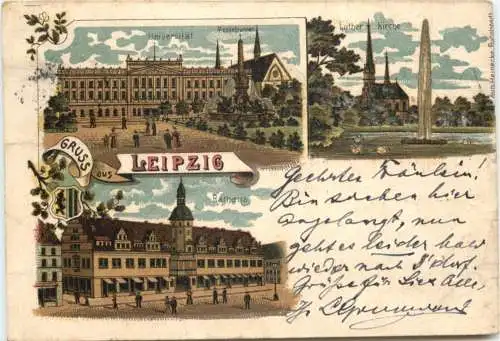 Universität
Mendebrunnen
Luther-Kirche
GRUSS
aus
LEIPZIG
Rathaus
Geehrtes Fräulein!
Bin soeben hier
angelangt, nun
geht es leider bald
wieder nach
Grüße für Sie Alle,